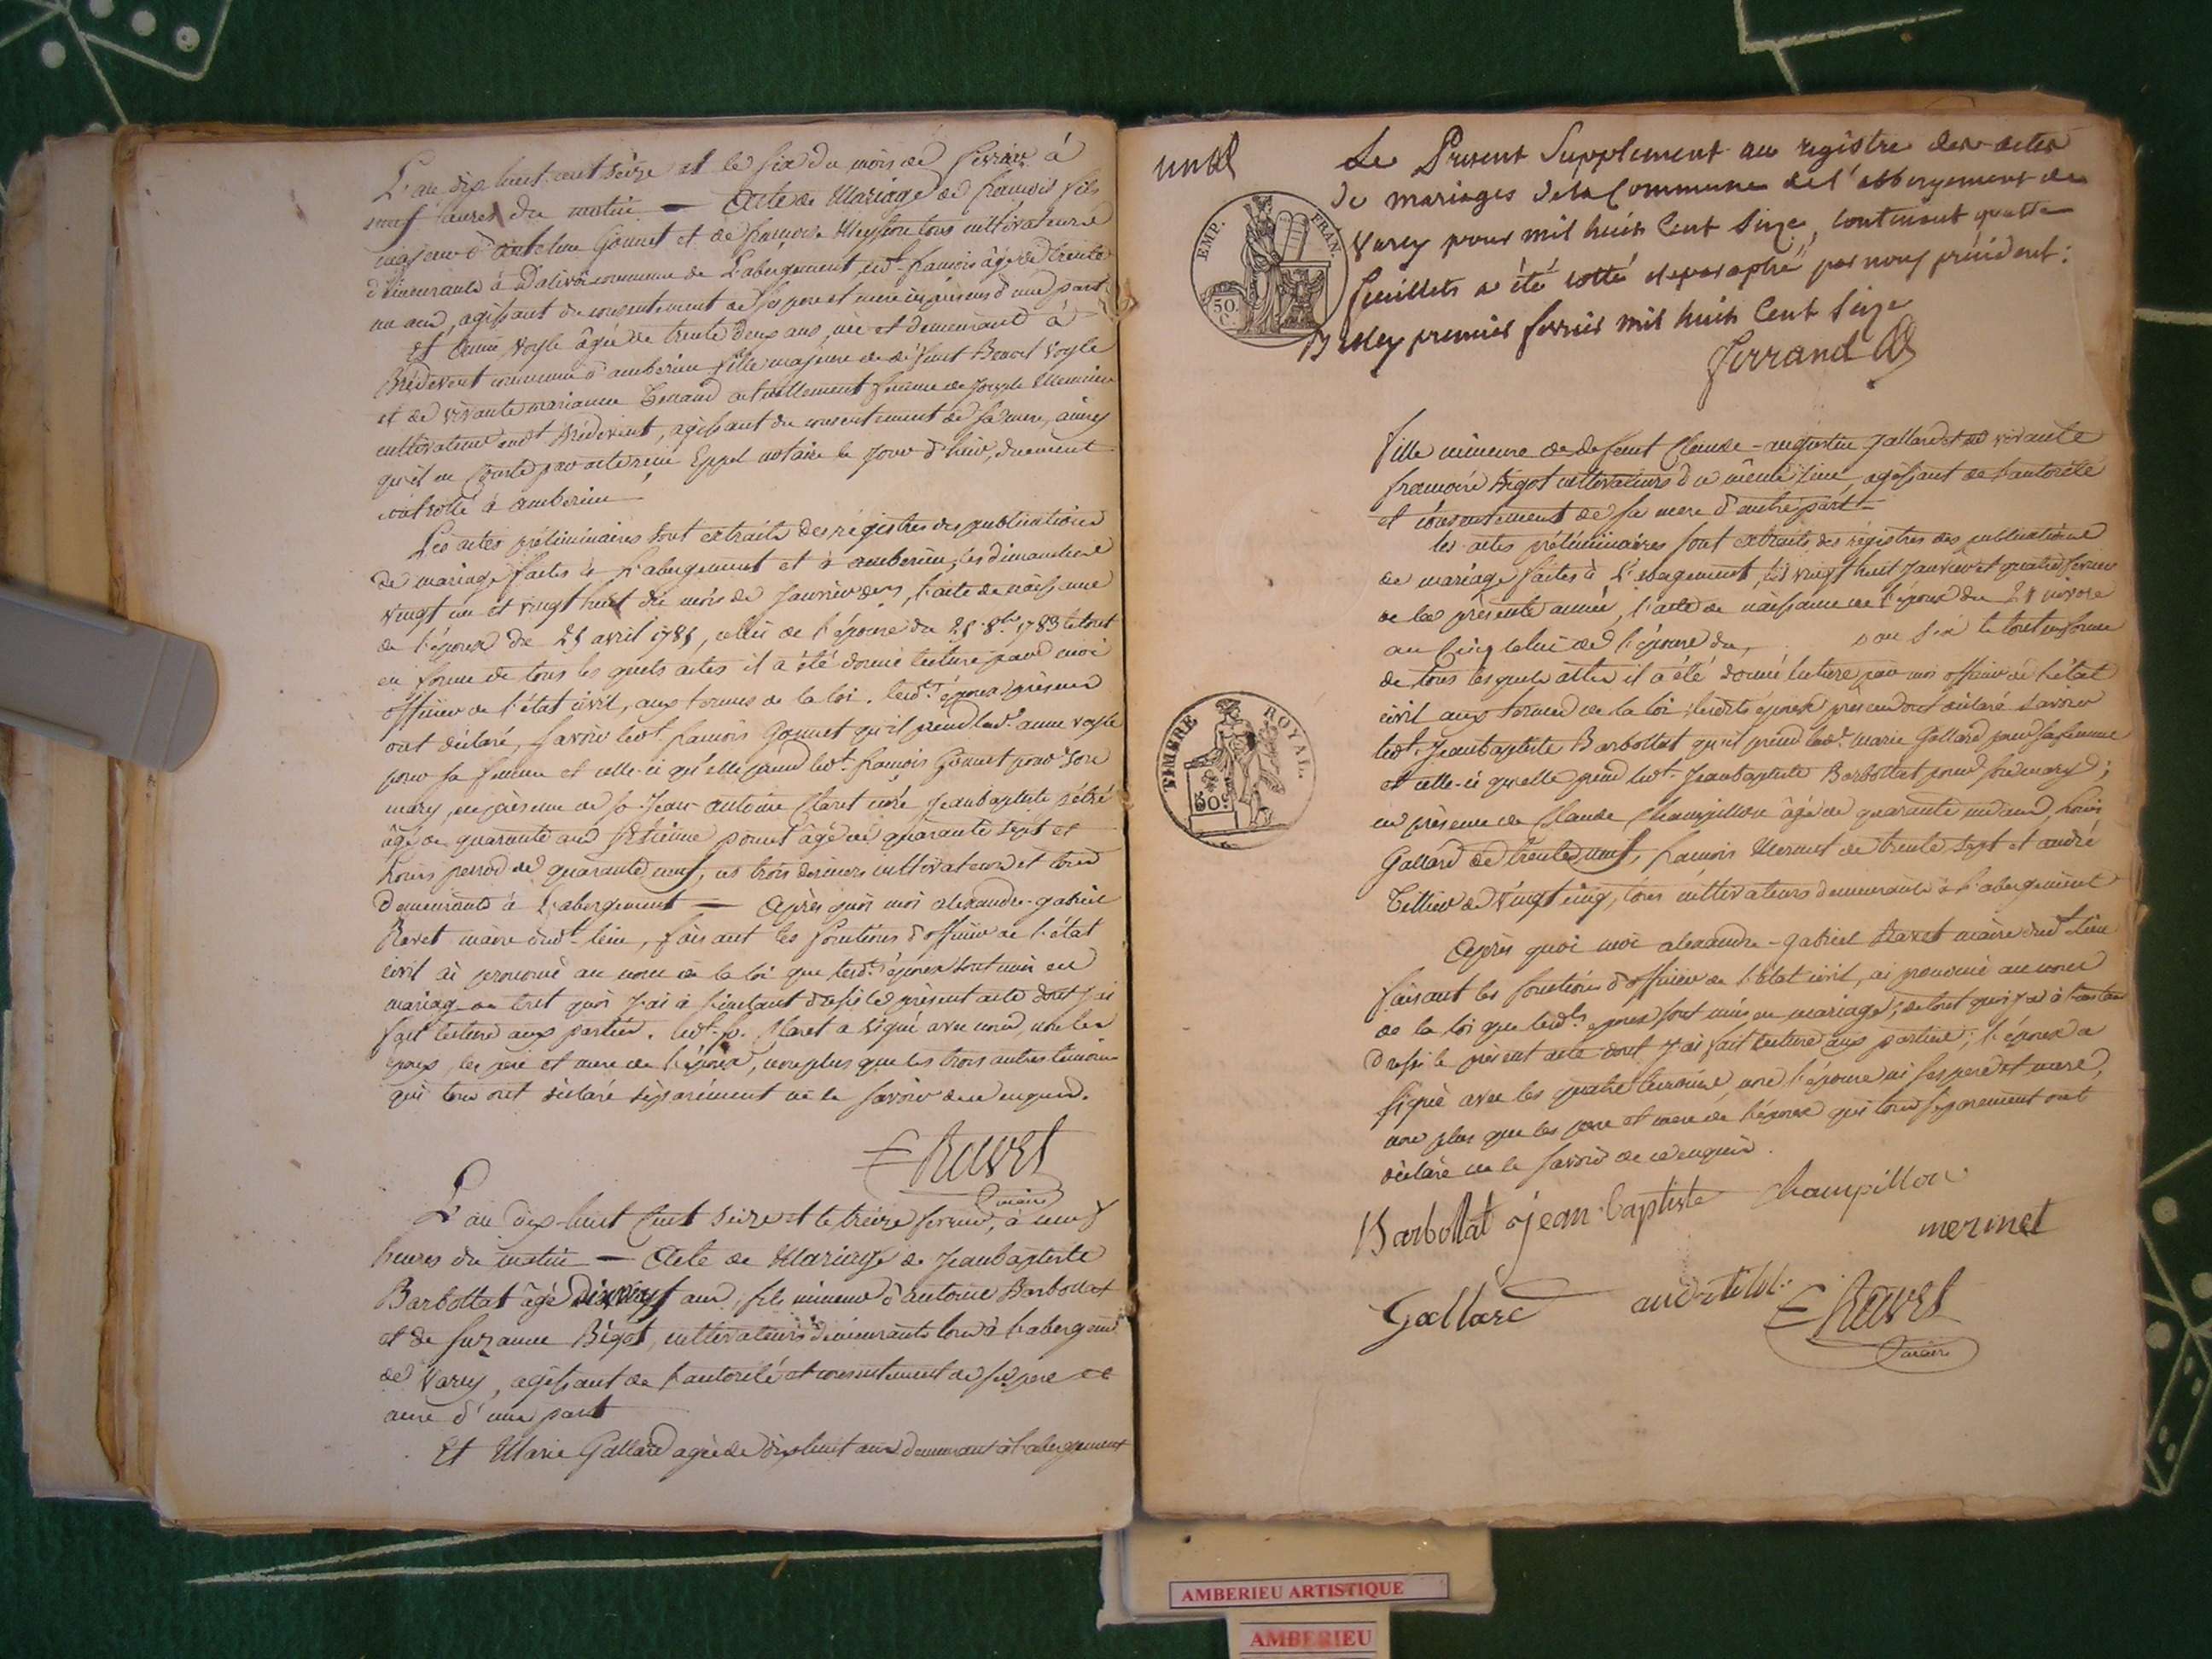 L'an dix huit cent seize et le six du mois de fevrier à
neuf heures du matin — Acte de Mariage de françois fils
majeur d'antelme Gonnet et de françoise tous cultivateurs
demeurants à commune de L'abergement, ledt. françois âgé de trente
un ans, agissant du consentement de ses pere et mere ici présens d'une part
Et anne Voyle âgée de trente deux ans, née et demeurant à
Brédevent commune d'amberieu fille majeure de défunt Benoit Voyle
et de vivante marianne Tenand actuellement femme de Joseph
cultivateur audt. Brédevent, agissant du consentement de sa mere, ainsy
qu'il en conste par acte reçu Eppel notaire le jour d'hier, duement
controllé à amberieu
Les actes préliminaires sont extraits des régistres des publications
de mariage faites à L'abergement et à amberieu, les dimanches
vingt un et vingt huit du mois de Janvier der, l'acte de naissance
de l'époux du 25 avril 1785, celui de l'épouse du 28 8bre 1783 le tout
en forme de tous les quels actes il a été donné lecture par moi
officier de l'état civil, aux termes de la loi. lesdts. époux présens
ont déclaré, savoir ledt. françois Gonnet qu'il prend ladt. anne Voyle
pour sa femme et celle-ci qu'elle prend ledt. françois Gonnet pour son
mary, en présence de sr. Jean antoine Claret curé, Jeanbaptiste
âgé de quarante ans, Etienne ponut âgé de quarante sept et
Louis perrod de quarante neuf, ces trois derniers cultivateurs et tous
demeurants à L'abergement — Après quoi moi alexandre-gabriel
Ravet maire dudt. lieu, faisant les fonctions d'officier de l'état
civil ai prononcé au nom de la loi que lesdts. époux sont unis en
mariage de tout quoi J'ai à l'instant dressé le présent acte dont J'ai
fait lecture aux parties. ledt. sr. Claret a signé avec nous, non les
époux, les pere et mere de l'époux, non plus que les trois autres temoins
qui tous ont déclaré séparément ne le savoir de ce enquis.
Ravet
maire
L'an dix-huit Cent Seize et le treize fevrier, à neuf
heures du matin — Acte de Mariage de Jeanbaptiste
Barbollat âgé dixneuf ans, fils mineur d'antoine Barbollat
et de Suzanne Bigot, cultivateurs demeurants tous à L'abergemt
de Varey, agissant de l'autorité et consentement de ses pere et
mere d'une part
Et Marie Gallard agée de dixhuit ans demeurant à L'abergement
unal
Le Present Supplement au registre des actes
de mariages de la Commune de l'abbergement de
Varey pour mil huit Cent Seize, contenant quatre
feuillets a été cotté et paraphé par nous président:
Belley premier fevrier mil huit Cent Seize
Ferrand
EMP. FRAN.
50. C.
Fille mineure de defunt Claude-augustin Gallard et de vivante
françoise Bigot cultivateurs du même lieu agissant de l'autorité
et consentement de sa mere d'autre part —
les actes préliminaires sont extraits des régistres des publications
de mariage faites à L'abergement, les vingt huit Janvier et quatre fevrier
de la présente année, l'acte de naissance de l'époux du 21 nivose
an Cinq celui de l'épouse du an six le tout en forme
de tous lesquels actes il a été donné lecture par moi officier de l'état
civil aux termes de la loi; lesdits époux présens ont déclaré savoir
ledt. Jeanbaptiste Barbollat qu'il prend ladt. Marie Gallard pour sa femme
et celle-ci qu'elle prend ledt. Jeanbaptiste Barbollat pour son mary;
en présence de Claude Champillon âgé de quarante un ans, Louis
Gallard de trente neuf, françois Mermet de trente sept et andré
Tillier de vingt cinq, tous cultivateurs demeurants à L'abergement
TIMBRE ROYAL.
50 C.
Après quoi moi alexandre-gabriel Ravet maire dudt. lieu
faisant les fonctions d'officier de l'état civil, ai prononcé au nom
de la loi que lesdts. époux sont unis en mariage; de tout quoi J'ai à l'instant
dressé le présent acte dont J'ai fait lecture aux parties; l'époux a
signé avec les quatre temoins, non l'épouse ni ses pere et mere,
non plus que les pere et mere de l'époux qui tous séparement ont
déclaré ne le savoir de ce enquis.
Barbollat jean-baptiste champillon
mermet
Gallard
Ravet
maire
AMBERIEU ARTISTIQUE
AMBERIEU